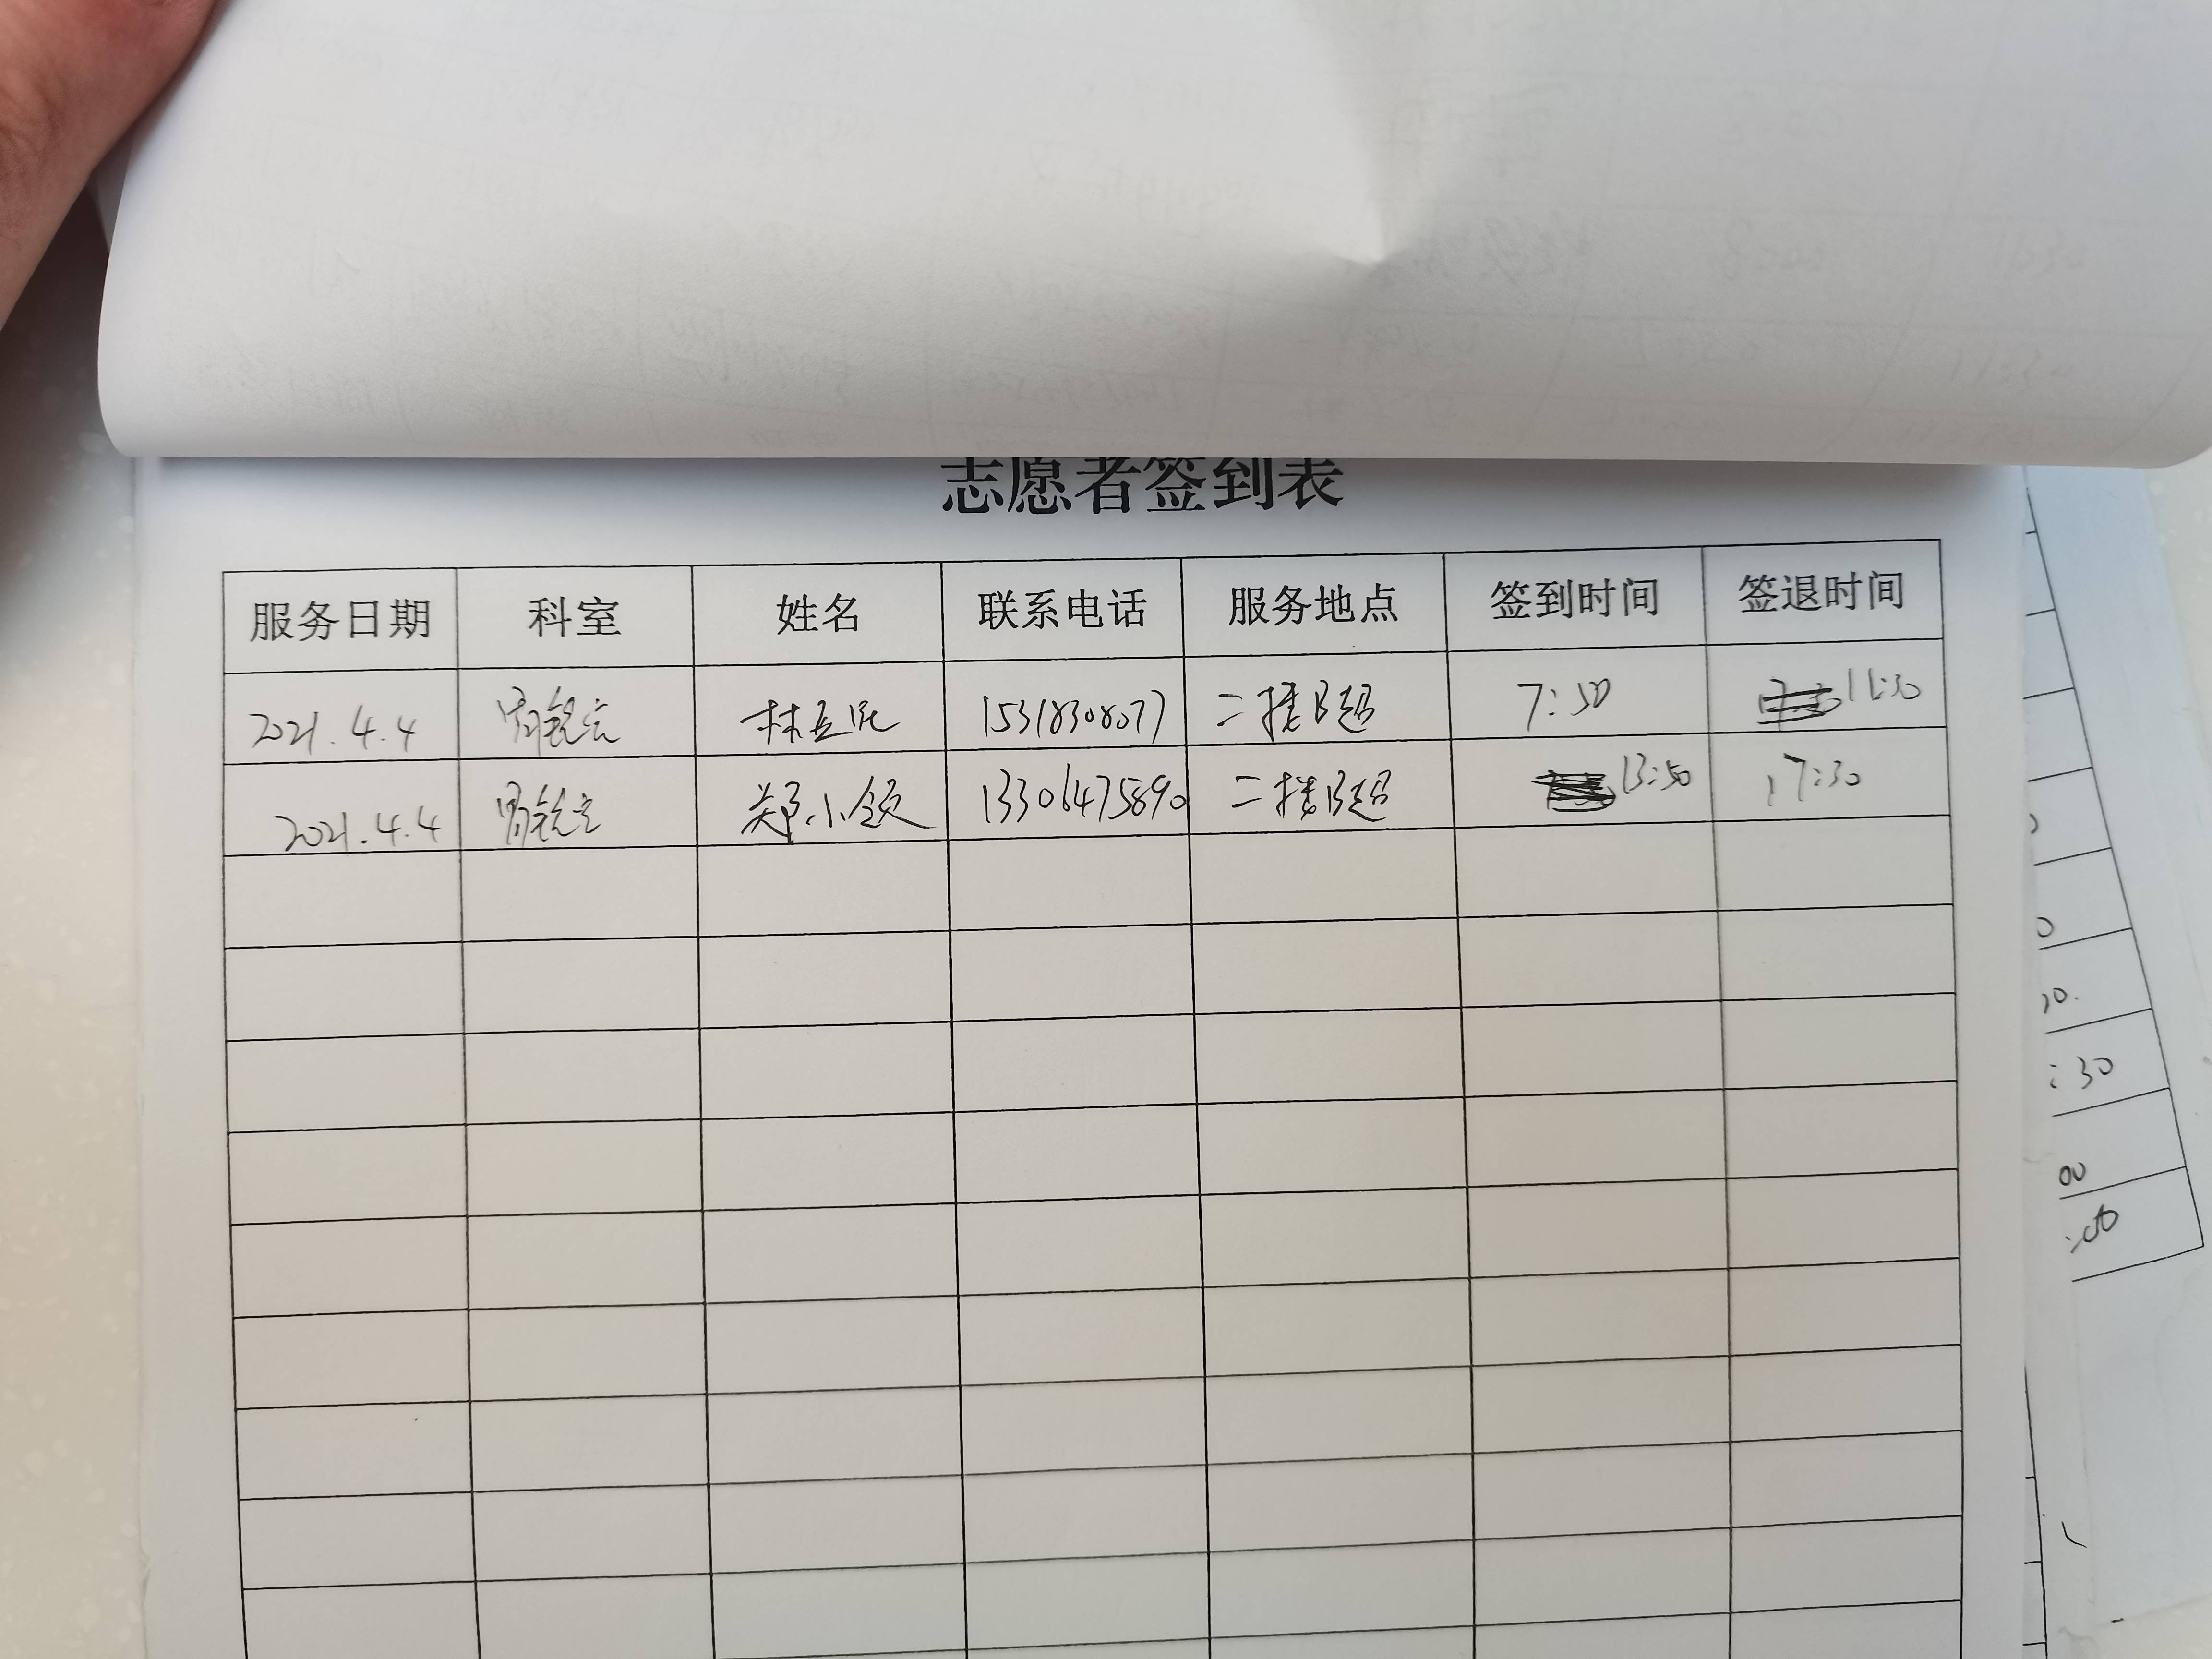 志愿者签到表
服务日期 科室 姓名 联系电话 服务地点 签到时间 签退时间
2021.4.4 胃镜室 林 15318308077 二楼B超 7:50 11:30
2021.4.4 胃镜室 郑小 13306475890 二楼B超 13:50 17:30
:30
00
:00